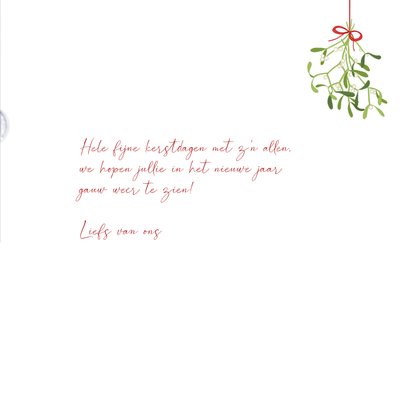 Hele fijne kerstdagen met z'n allen,
we hopen jullie in het nieuwe jaar
gauw weer te zien!
Liefs van ons